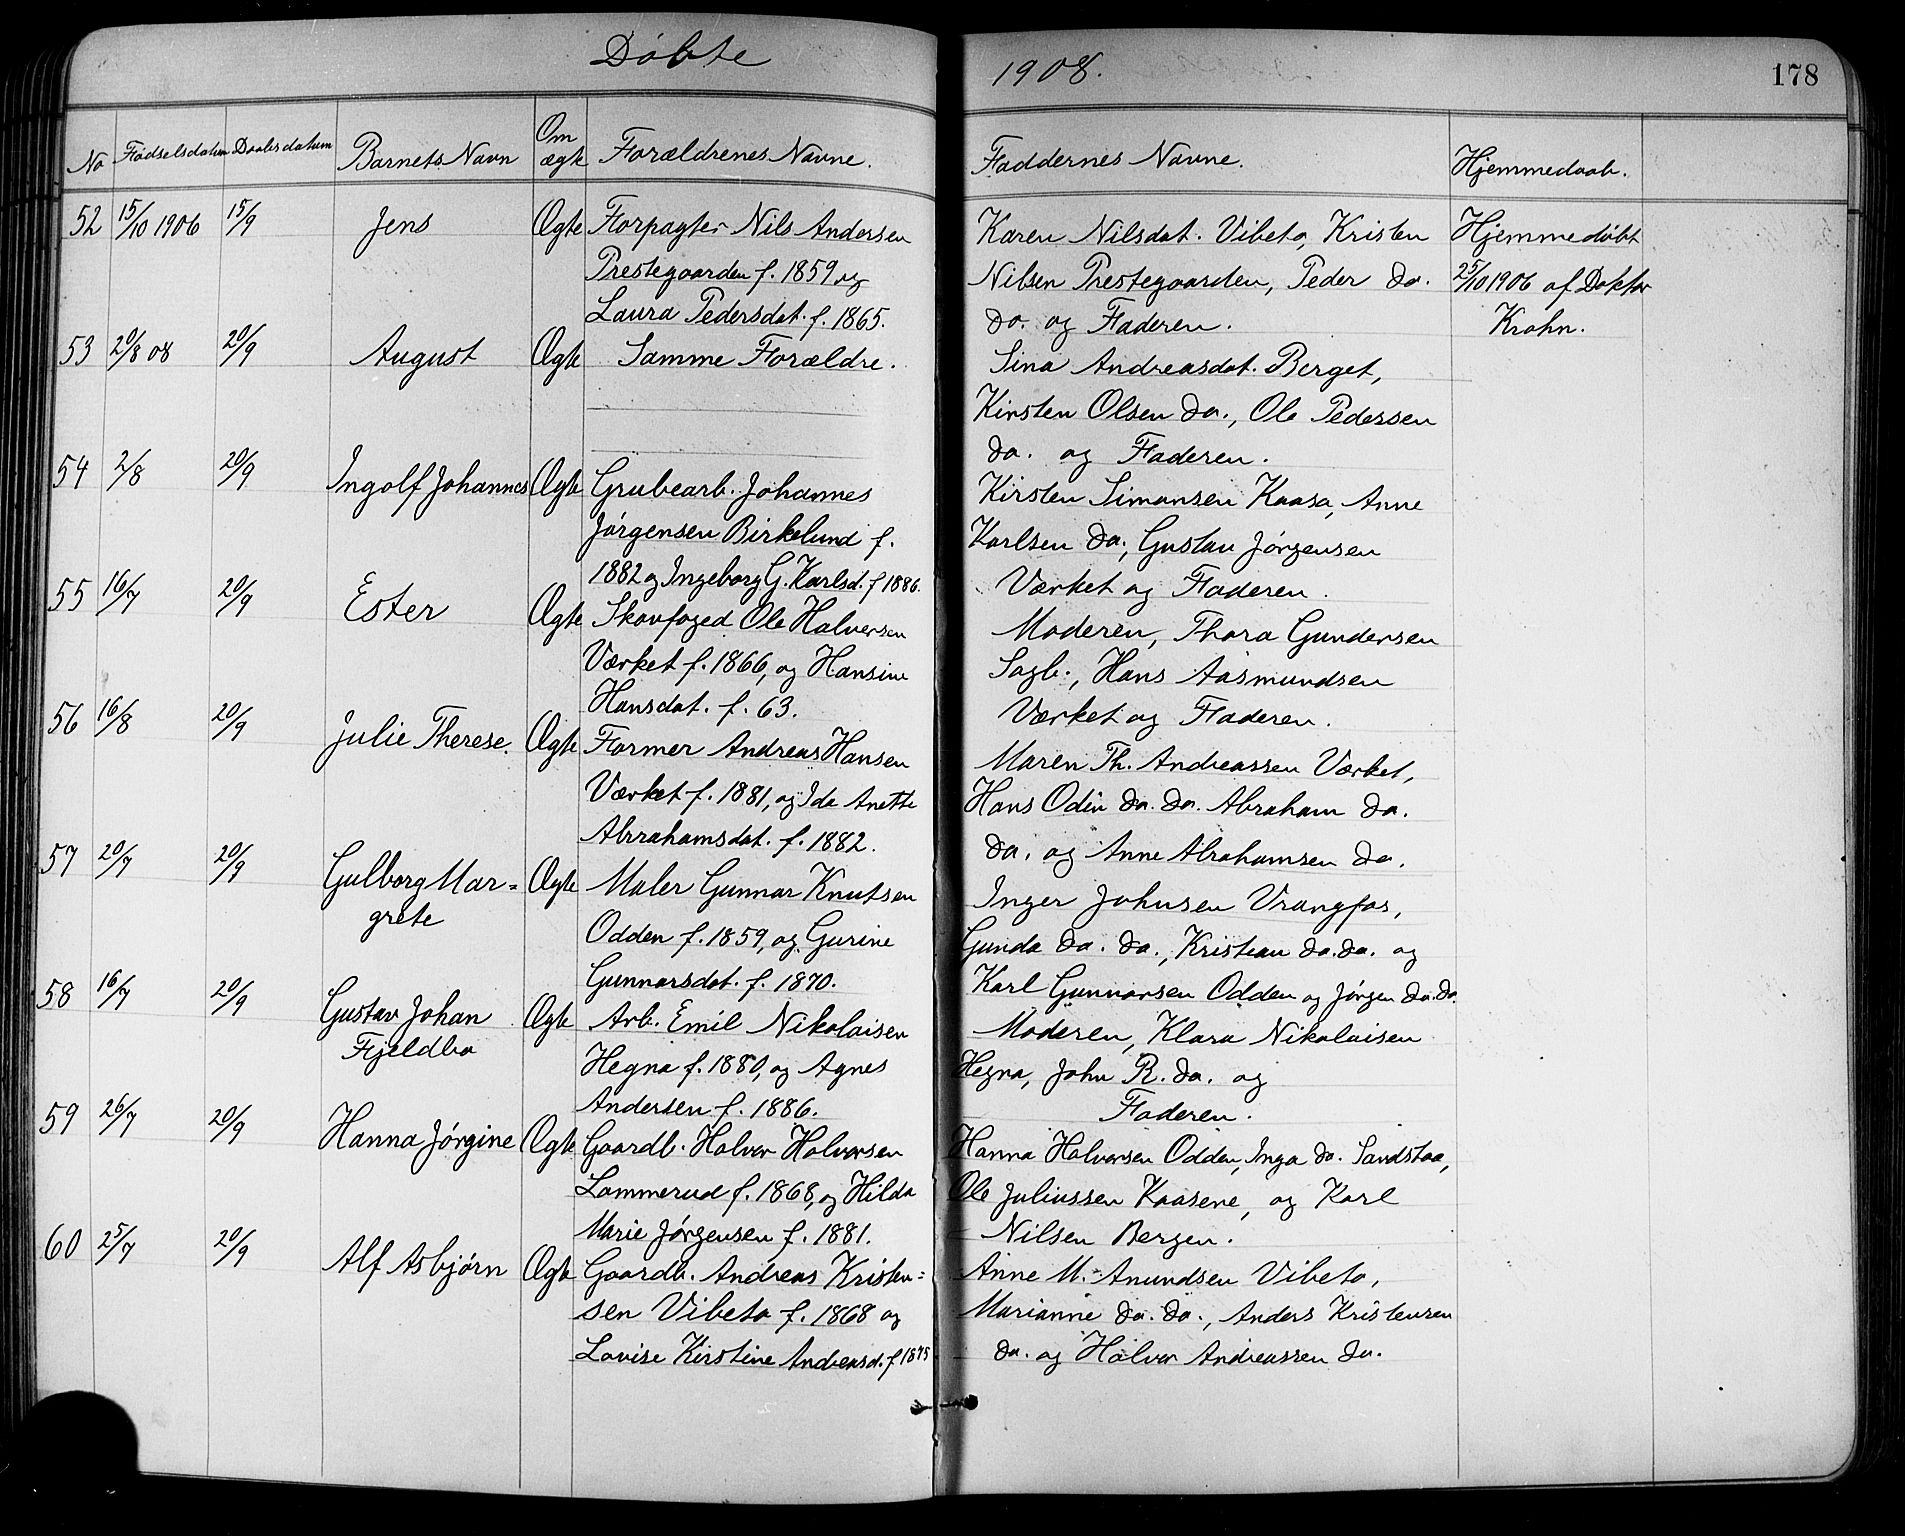 Döbte 1908. 178
No Födselsdatum Daabsdatum Barnets Navn Om ægte Forældrenes Navne. Faddernes Navne. Hjemmedaab.
52 15/10 1906 15/9 Jens Ægte Forpagter Nils Andersen Karen Nilsdat. Vibeto, Kristen Hjemmedöbt
Prestegaarden f. 1859 og Nilsen Prestegaarden, Peder do. 25/10 1906 af Doktor
Laura Pedersdat. f. 1865. do. og Faderen. Krohn.
53 20/8 08 20/9 August Ægte Samme Forældre. Sina Andreasdat. Berget,
Kirsten Olsen do., Ole Pedersen
do. og Faderen.
54 2/8 20/9 Ingolf Johannes Ægte Grubearb. Johannes Kirsten Simonsen Kaasa, Anne
Jörgensen Birkelund f. Karlsen do., Gustav Jörgensen
1882 og Ingeborg G. Karlsd. f 1886. Værket og Faderen.
55 16/7 20/9 Ester Ægte Skovfoged Ole Halvorsen Moderen, Thora Gundersen
Værket f. 1866, og Hansine Sagb., Hans Aasmundsen
Hansdat. f. 63. Værket og Faderen.
56 16/8 20/9 Julie Therese. Ægte Former Andreas Hansen Maren Th. Andreassen Værket,
Værket f. 1881, og Ida Anette Hans Odin do. do. Abraham do.
Abrahamsdat. f. 1882. do. og Anne Abrahamsen do.
57 20/7 20/9 Gulborg Mar= Ægte Maler Gunnar Knutsen Inger Johnsen Vrangfos,
grete Odden f. 1859, og Gurine Gunda do. do., Kristian do. do. og
Gunnarsdat. f. 1870. Karl Gunnarsen Odden og Jörgen do. do.
58 16/7 20/9 Gustav Johan Ægte Arb. Emil Nikolaisen Moderen, Klara Nikolaisen
Fjeldbo Hegna f. 1880, og Agnes Hegna, John R. do. og
Andersen f. 1886. Faderen.
59 26/7 20/9 Hanna Jörgine Ægte Gaardb. Halvor Halvorsen Hanna Halvorsen Odden, Inga do. Sandstaa,
Lammerud f. 1868, og Hilda Ole Juliussen Kaasene, og Karl
Marie Jörgensen f. 1881. Nilsen Bergen.
60 25/7 20/9 Alf Asbjörn Ægte Gaardb. Andreas Kristen= Anne M. Anundsen Vibeto,
sen Vibeto f. 1868 og Marianne do. do., Anders Kristensen
Lovise Kirstine Andreasd. f 1875 do. og Halvor Andreassen do.